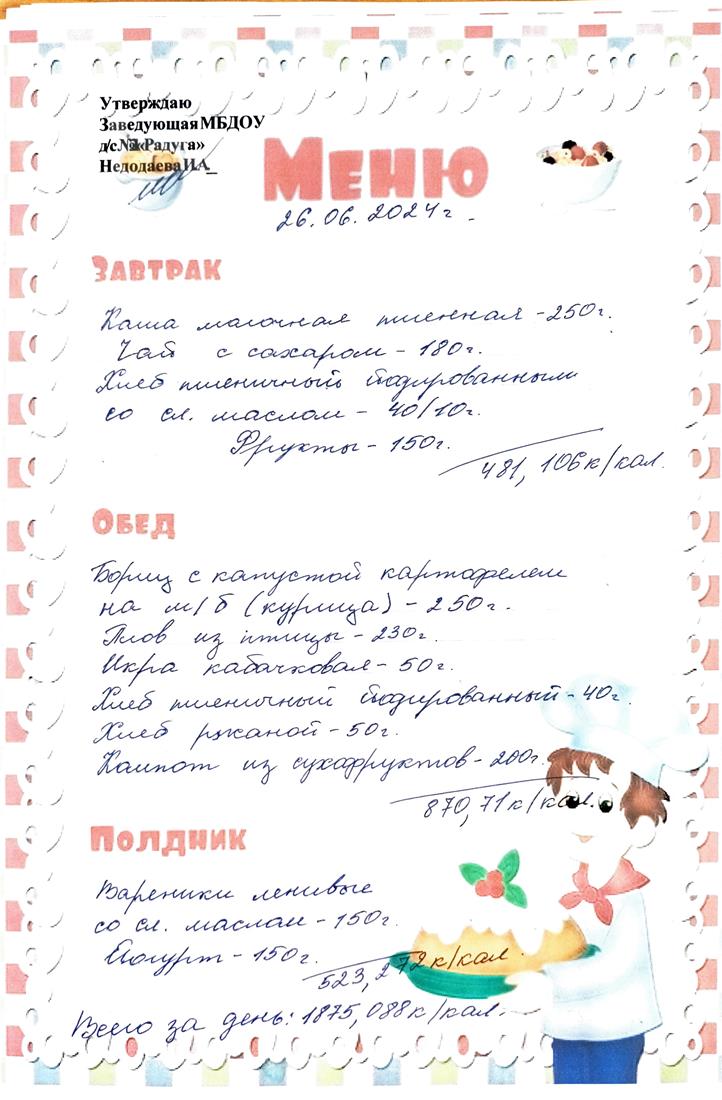 Утверждаю
Заведующая МБДОУ
«Радуга»
Недодаева И.А_
Меню
26.06.2024г.
Завтрак
Каша молочная пшенная - 250г.
Чай с сахаром - 180г.
Хлеб пшеничный йодированный
со сл. маслом - 40/10г.
Фрукты - 150г.
481,106к/кал.
Обед
Борщ с капустой картофелем
на м/б (курица) - 250г.
Плов из птицы - 230г.
Икра кабачковая - 50г.
Хлеб пшеничный йодированный - 40г.
Хлеб ржаной - 50г.
Компот из сухофруктов - 200г.
870,71к/кал.
Полдник
Вареники ленивые
со сл. маслом - 150г.
Йогурт - 150г.
523,272к/кал.
Всего за день: 1875,088к/кал.